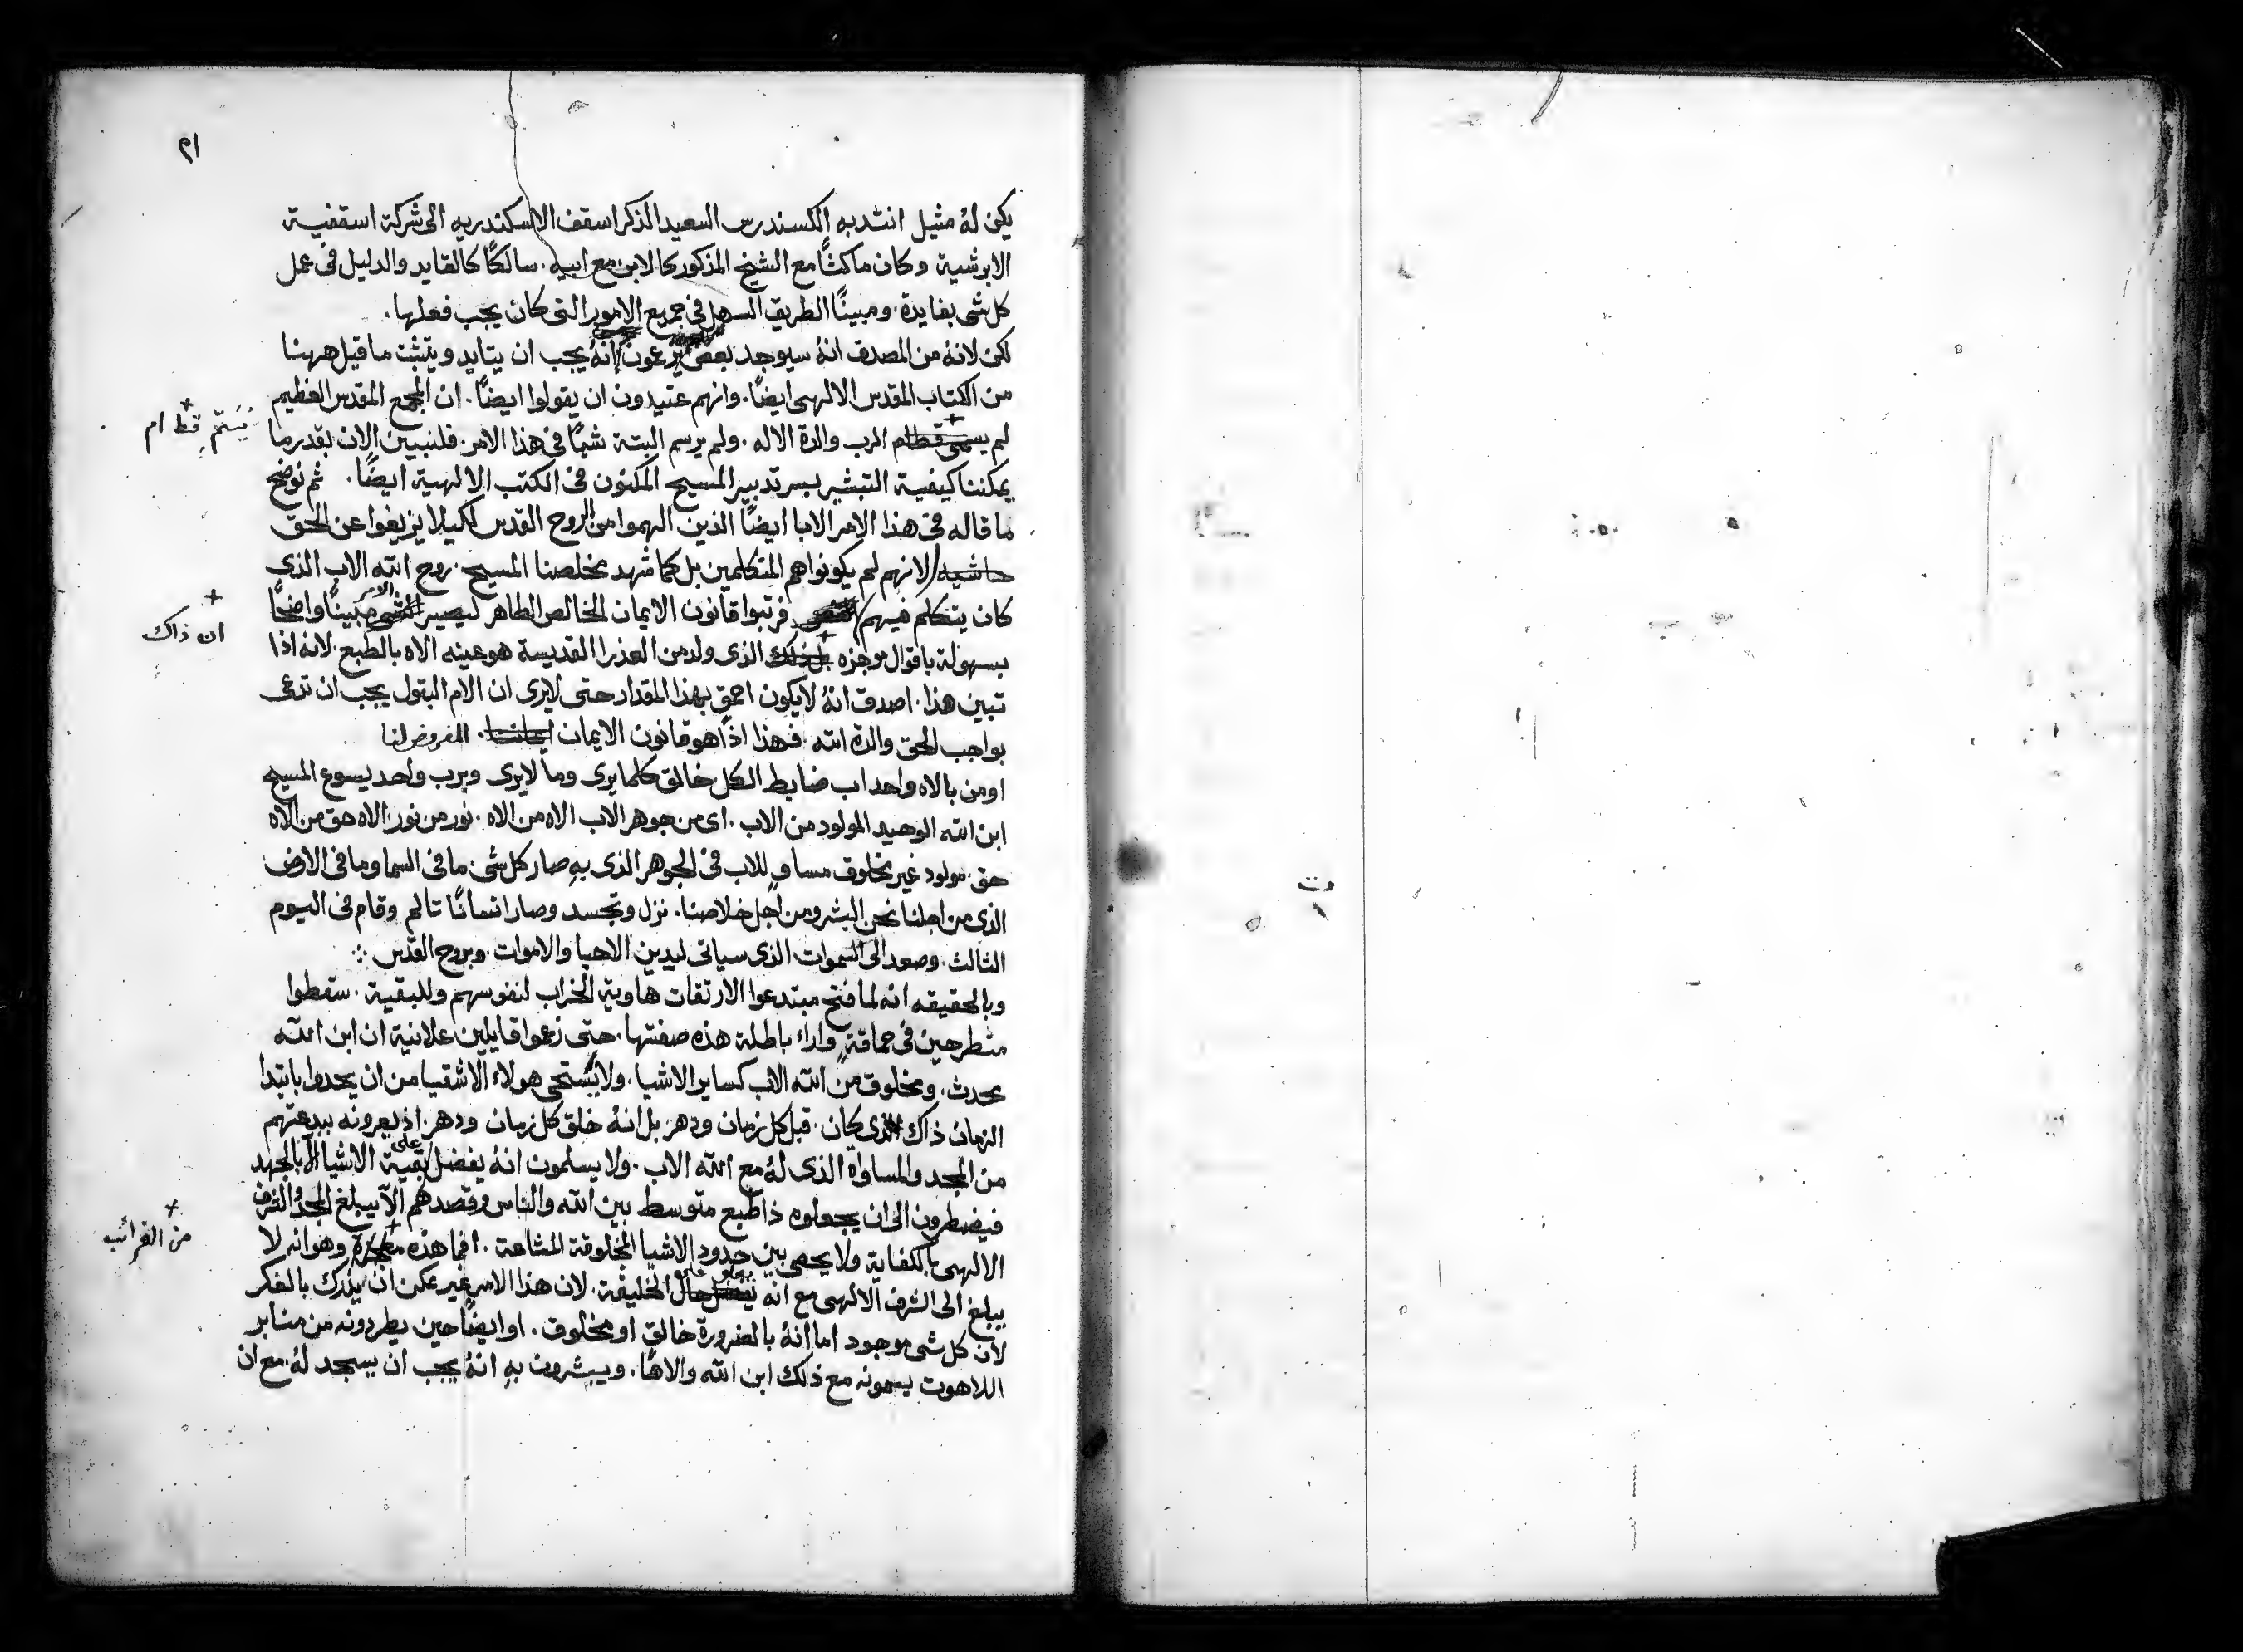 ٢١
يكن له مثيل انتدبه الكسندرس السعيد الذكر اسقف الاسكندريه الى شركة اسقفية
الابرشية وكان ماكثًا مع الشيخ المذكور كالابن مع ابيه. سالكًا كالقايد والدليل فى عمل
كل شى بفايدة. ومبينًا الطريق السهل فى جميع الامور التى كان يجب فعلها.
لكن لانهُ من المصدق انهُ سيوجد بعض يزعون انهُ يجب ان يتايد ويتثبت ما قيل ههنا
من الكتاب المقدس الالهى ايضًا. وانهم عتيدون ان يقولوا ايضًا. ان المجمع المقدس العظيم
لم يسمى قط ام الرب والدة الاله. ولم يرسم البتة شيًا فى هذا الامر. فلنبين الان بقدر ما
يُسَمِّ قط ام
يمكننا كيفية التبشير بسر تدبير المسيح المكنون فى الكتب الالهية ايضًا. ثم نوضح
ما قاله فى هذا الامر الابا ايضًا الذين الهموا من الروح القدس لكيلا يزيغوا عن الحق
حاشيه لانهم لم يكونوا هم المتكلمين بل كما شهد مخلصنا المسيح. روح الله الاب الذى
كان يتكلم فيهم فرتبوا قانون الايمان الخالص الطاهر ليصير الشى الامر مبينًا واضحًا
ان ذاك
بسهولة باقوال موجزه بل ذلك الذى ولد من العذرا القديسة هو عينه الاه بالطبع. لانه اذا
تبين هذا. اصدق انهُ لا يكون احمق بهذا المقدار حتى لا يرى ان الام البتول يجب ان تدعى
بواجب الحق والدة الله. فهذا اذًا هو قانون الايمان ايماننا. المفروض لنا
اومن بالاه واحد اب ضابط الكل خالق كلما يرى وما لا يرى وبرب واحد يسوع المسيح
ابن الله الوحيد المولود من الاب. اى من جوهر الاب الاه من الاه. نور من نور. الاه حق من الاه
حق. مولود غير مخلوق مساوٍ للاب فى الجوهر الذى بهِ صار كل شى ما فى السما وما فى الارض
الذى من اجلنا نحن البشر ومن اجل خلاصنا. نزل وتجسد وصار انسانًا تالم وقام فى اليوم
الثالث. وصعد الى السموات. الذى سياتى ليدين الاحيا والاموات. وبروح القدس
وبالحقيقه انه لما فتح مبتدعوا الارتقات هاوية الخراب لنفوسهم وللبقية. سقطوا
متطرحين فى حماقةٍ واراء باطلة هذه صفتها. حتى زعموا قايلين علانية ان ابن الله
محدث. ومخلوق من الله الاب كساير الاشيا. ولا يستحى هولاء الاشقيا من ان يحدوا بابتدا
الزمان ذاك الذى كان. قبل كل زمان ودهر. بل انهُ خلق كل زمان ودهر. اذ يعرونه ببدعتهم
من المجد والمساواة الذى لهُ مع الله الاب. ولا يسلمون انهُ يفضل على بقية الاشيا الا بالجهد
فيضطرون الى ان يجعلوه ذا طبع متوسط بين الله والناس وقصدهم الا يبلغ المجد والشرف
من الغرائب
الالهى بالكفاية ولا يحصى بين حدود الاشيا المخلوقة المشاعة. افما هذه معجزة وهو انه لا
يبلغ الى الشرف الالهى مع انه يفضل حال الخليقة. لان هذا الامر غير يمكن ان يدرك بالفكر
لان كل شى موجود اما انهُ بالضرورة خالق او مخلوق. او ايضًا حين يطردونه من منابر
اللاهوت يسمونه مع ذلك ابن الله والاهًا. ويبشرون بهِ انهُ يجب ان يسجد لهُ. مع ان